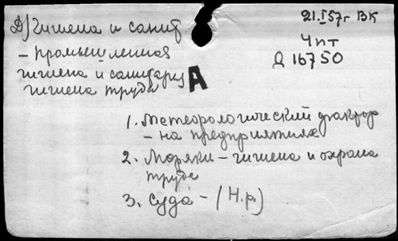 Д) Гигиена и санит
21.I 57г ВК
- промышленная
4 пт
гигиена и санитария
Д 16750
А
гигиена труда
1. Метеорологический фактор
- на предприятиях
2. Моряки - гигиена и охрана
труда
3. Суда - (Н.р.)